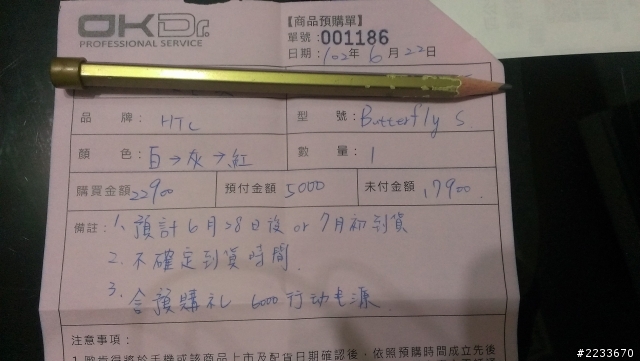 OKDr.
PROFESSIONAL SERVICE
【商品預購單】
單號:001186
日期:102年6月22日
品牌:HTC
型號:Butterfly S
顏色:白→灰→紅
數量:1
購買金額22900
預付金額5000
未付金額17900
備註:1.預計6月28日後or7月初到貨
2.不確定到貨時間.
3.含預購禮 6000行动电源
注意事項:
#2233670